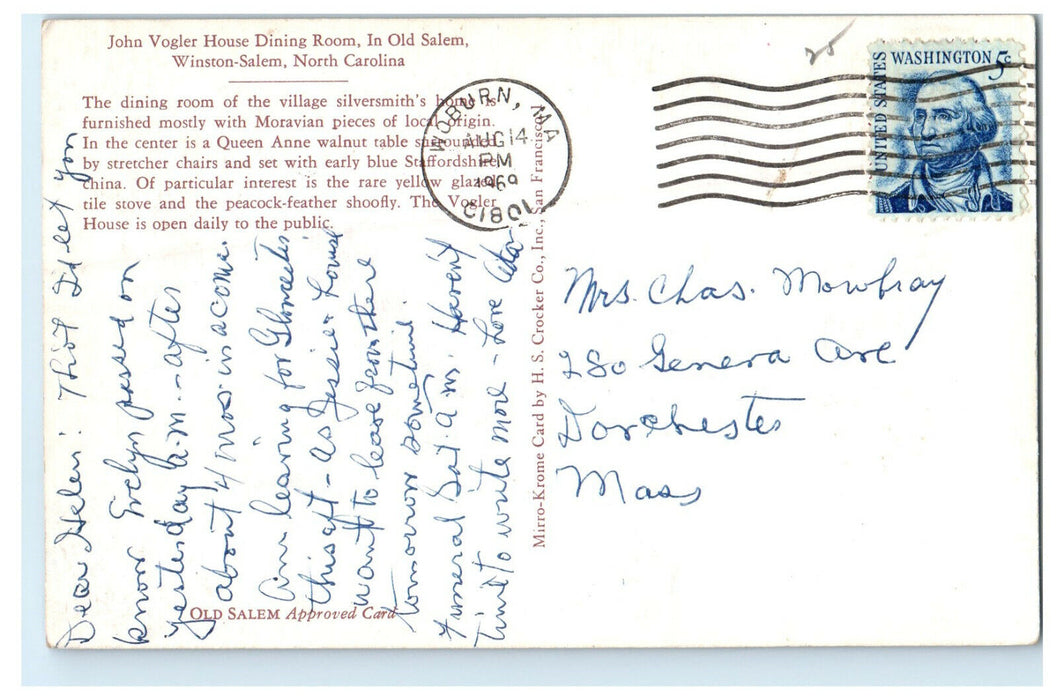 John Vogler House Dining Room, In Old Salem,
Winston-Salem, North Carolina
The dining room of the village silversmith's home is
furnished mostly with Moravian pieces of local origin.
In the center is a Queen Anne walnut table surrounded
by stretcher chairs and set with early blue Staffordshire
china. Of particular interest is the rare yellow glazed
tile stove and the peacock-feather shoofly. The Vogler
House is open daily to the public.
Dear Helen: Thot I'd let you
know Evelyn passed on
yesterday a.m. - after
about 4 mos. in a coma.
Am leaving for Gloucester
this aft - as Jessie + Louise
want to leave from there
tomorrow sometime.
Funeral Sat. a.m. Haven't
time to write more - Love
OLD SALEM Approved Card
Mirro-Krome Card by H. S. Crocker Co., Inc., San Francisco
WOBURN, MA
AUG 14
PM
1969
01801
25
UNITED STATES
WASHINGTON 5c
Mrs. Chas. Mowbray
280 Geneva Ave
Dorchester
Mass